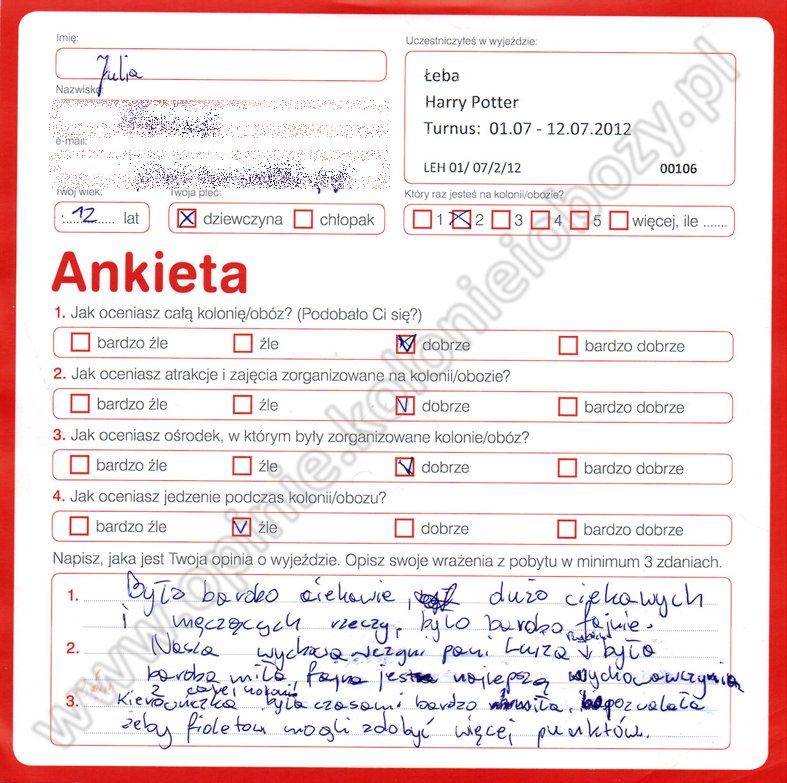 Imię:
Julia
Nazwisko:
e-mail:
Twój wiek:
12 lat
Twoja płeć:
dziewczyna chłopak
Uczestniczyłeś w wyjeździe:
Łeba
Harry Potter
Turnus: 01.07 - 12.07.2012
LEH 01/ 07/2/12 00106
Który raz jesteś na kolonii/obozie?
1 2 3 4 5 więcej, ile .......
Ankieta
1. Jak oceniasz całą kolonię/obóz? (Podobało Ci się?)
bardzo źle źle dobrze bardzo dobrze
2. Jak oceniasz atrakcje i zajęcia zorganizowane na kolonii/obozie?
bardzo źle źle dobrze bardzo dobrze
3. Jak oceniasz ośrodek, w którym były zorganizowane kolonie/obóz?
bardzo źle źle dobrze bardzo dobrze
4. Jak oceniasz jedzenie podczas kolonii/obozu?
bardzo źle źle dobrze bardzo dobrze
Napisz, jaka jest Twoja opinia o wyjeździe. Opisz swoje wrażenia z pobytu w minimum 3 zdaniach.
1. Było bardzo ciekawie, dużo ciekawych
i męczących rzeczy, było bardzo fajnie.
2. Nasza wychowawczyni pani Luiza była
bardzo miła, fajna jest najlepszą wychowawczynią
z całej kolonii
3. Kierowniczka była czasami bardzo miła, pozwalała
żeby fioletowi mogli zdobyć więcej punktów.
www.opinie.kolonieiobozy.pl